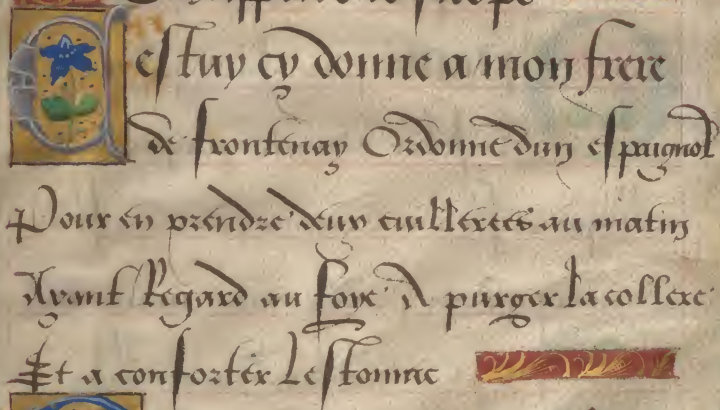 Cestuy cy donne a mon frere
de frontenay Ordonne dun espaignol
Pour en prendre deux cuillerees au matin
Ayant Regard au foye A purger la collere
Et a conforter Lestomac